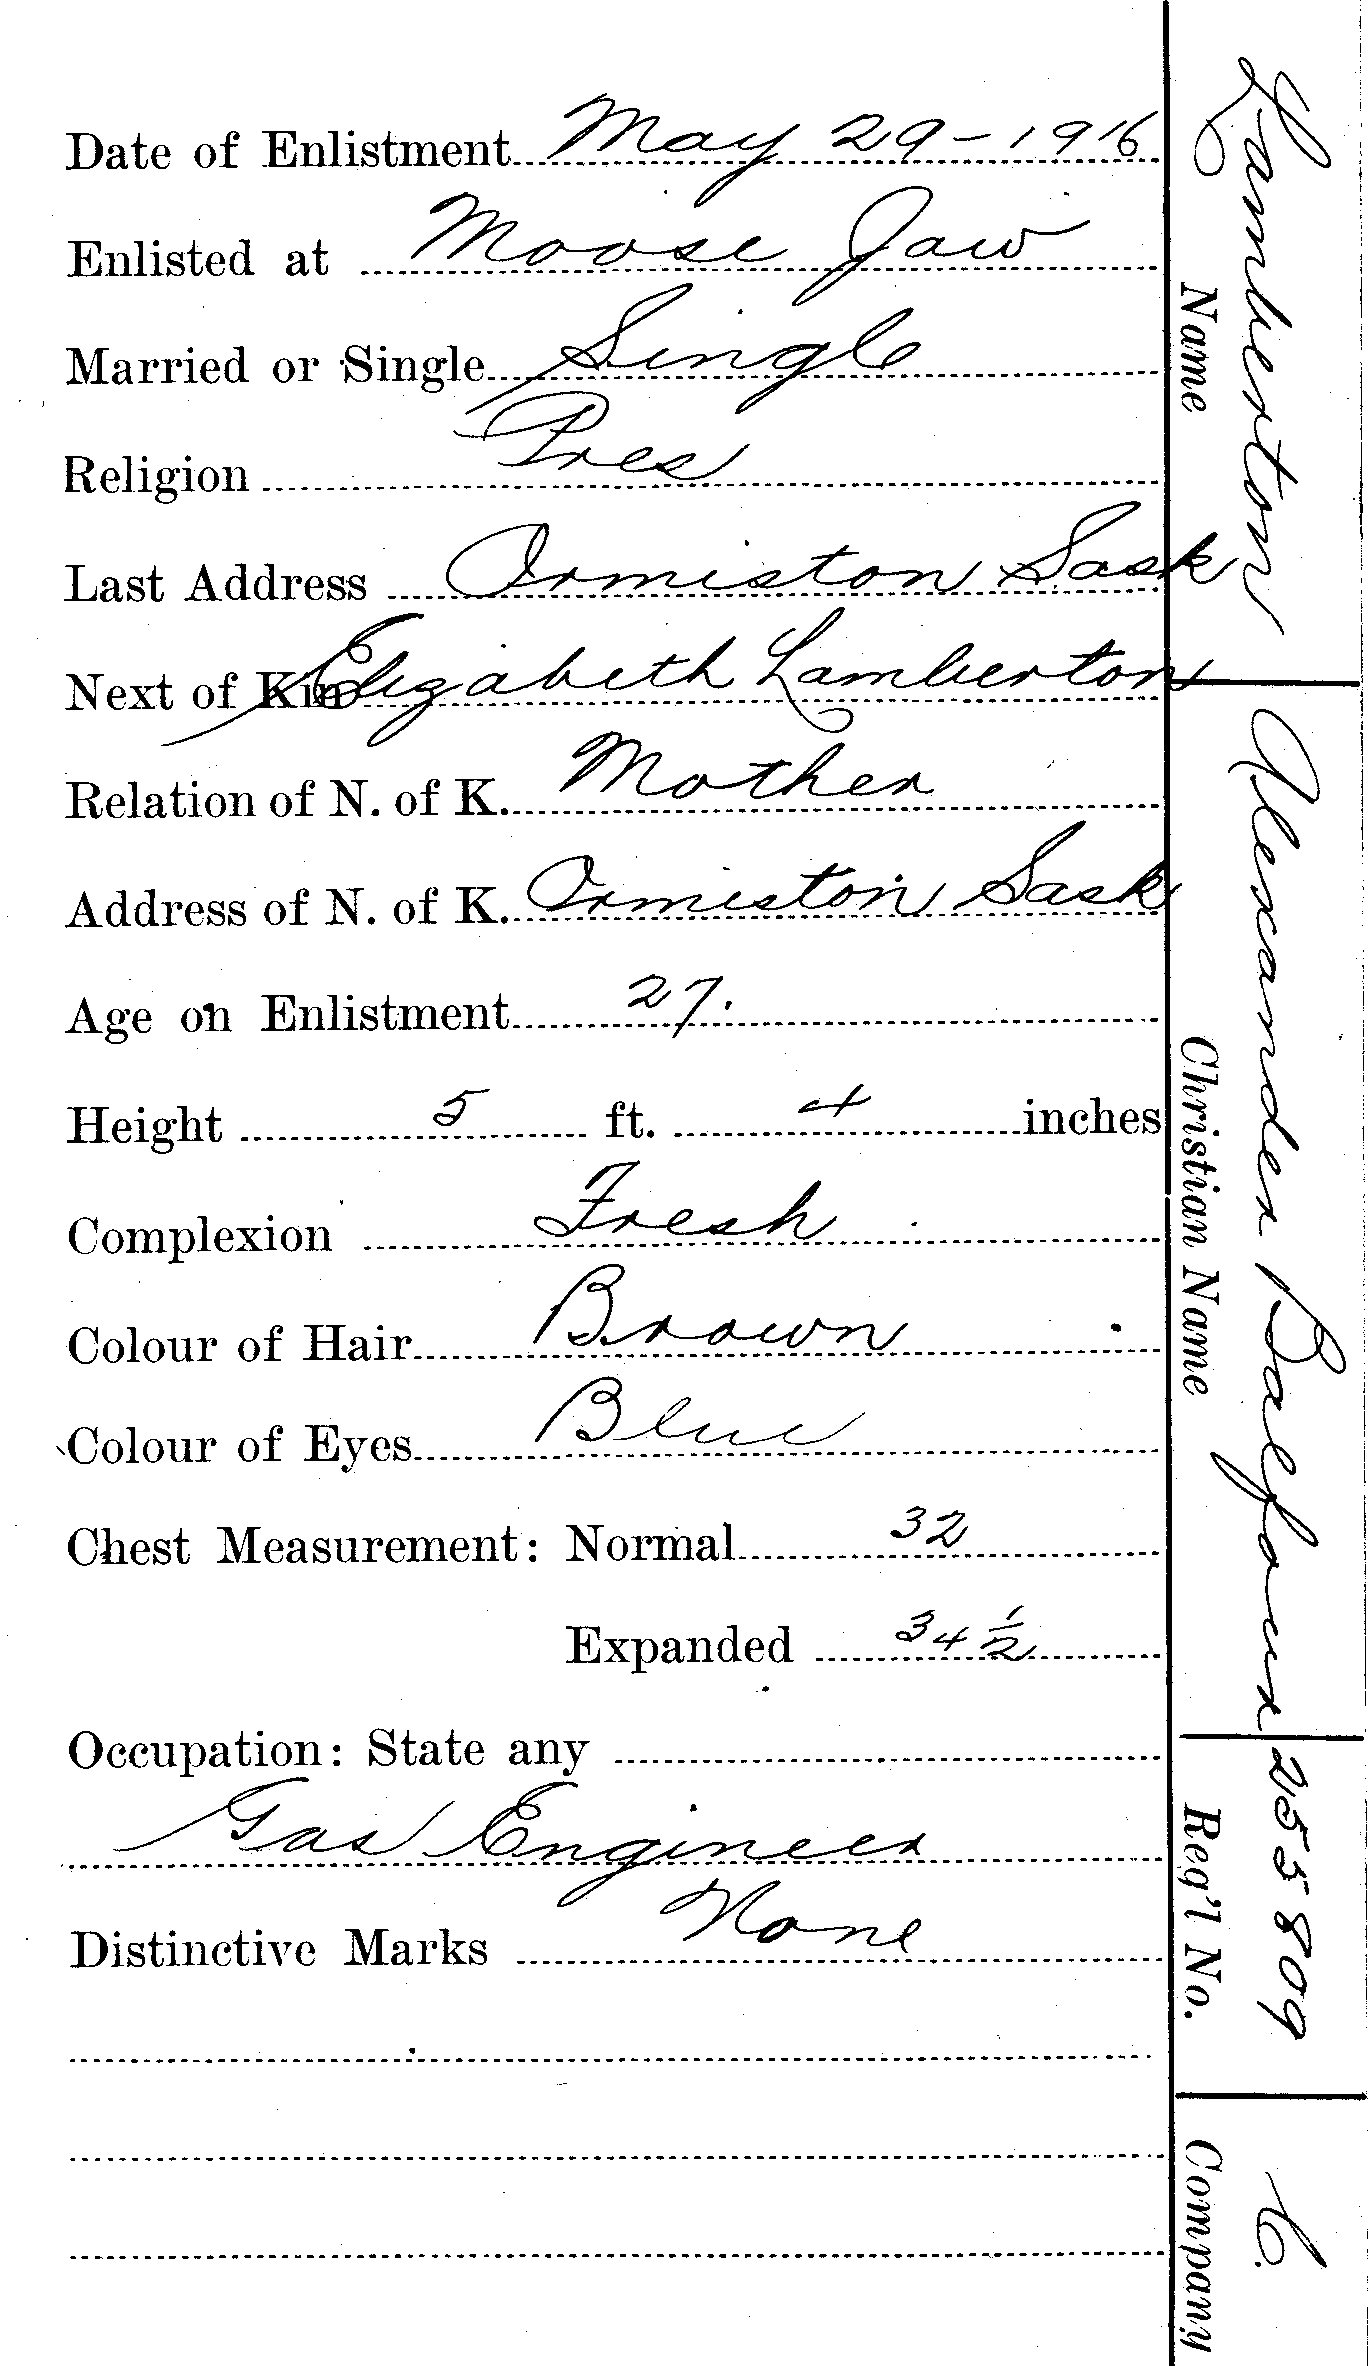 Date of Enlistment May 29-1916
Enlisted at Moose Jaw
Married or Single Single
Religion Pres
Last Address Ormiston Sask
Next of Kin Elizabeth Lamberton
Relation of N. of K. Mother
Address of N. of K. Ormiston Sask
Age on Enlistment 27.
Height 5 ft. 4 inches
Complexion Fresh
Colour of Hair Brown
Colour of Eyes Blue
Chest Measurement: Normal 32
Expanded 34 1/2
Occupation: State any
Gas Engineer
Distinctive Marks None
Lamberton Alexander Balfour 255809 C.
Name Christian Name Reg'l No. Company